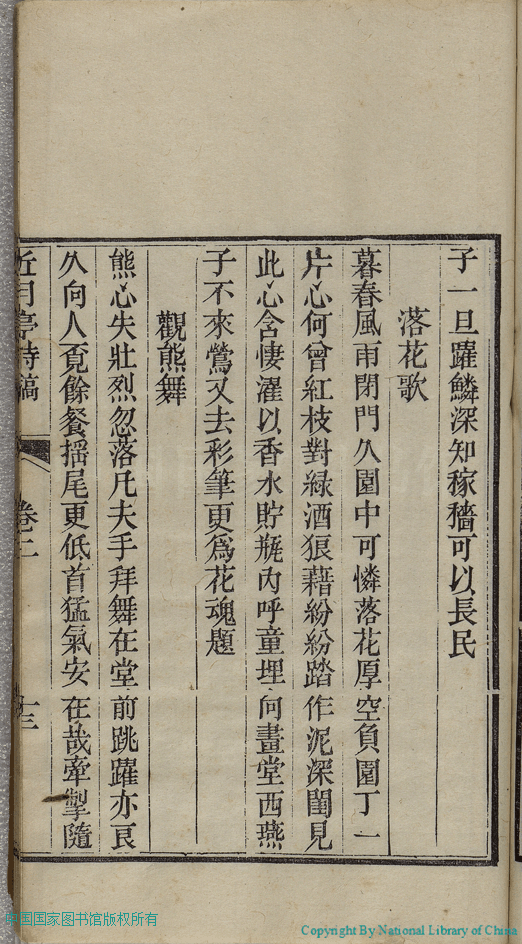 子一旦躍鱗深知稼穡可以長民
落花歌
暮春風雨閉門久園中可憐落花厚空負園丁一
片心何曾紅枝對綠酒狼藉紛紛踏作泥深閨見
此心含悽濯以香水貯瓶內呼童埋向畫堂西燕
子不來鶯又去彩筆更為花魂題
觀熊舞
熊心失壯烈忽落凡夫手拜舞在堂前跳躍亦良
久向人覓餘餐搖尾更低首猛氣安在哉牽掣隨
近月亭詩稿 卷二 十三
中国国家图书馆版权所有
Copyright By National Library of China